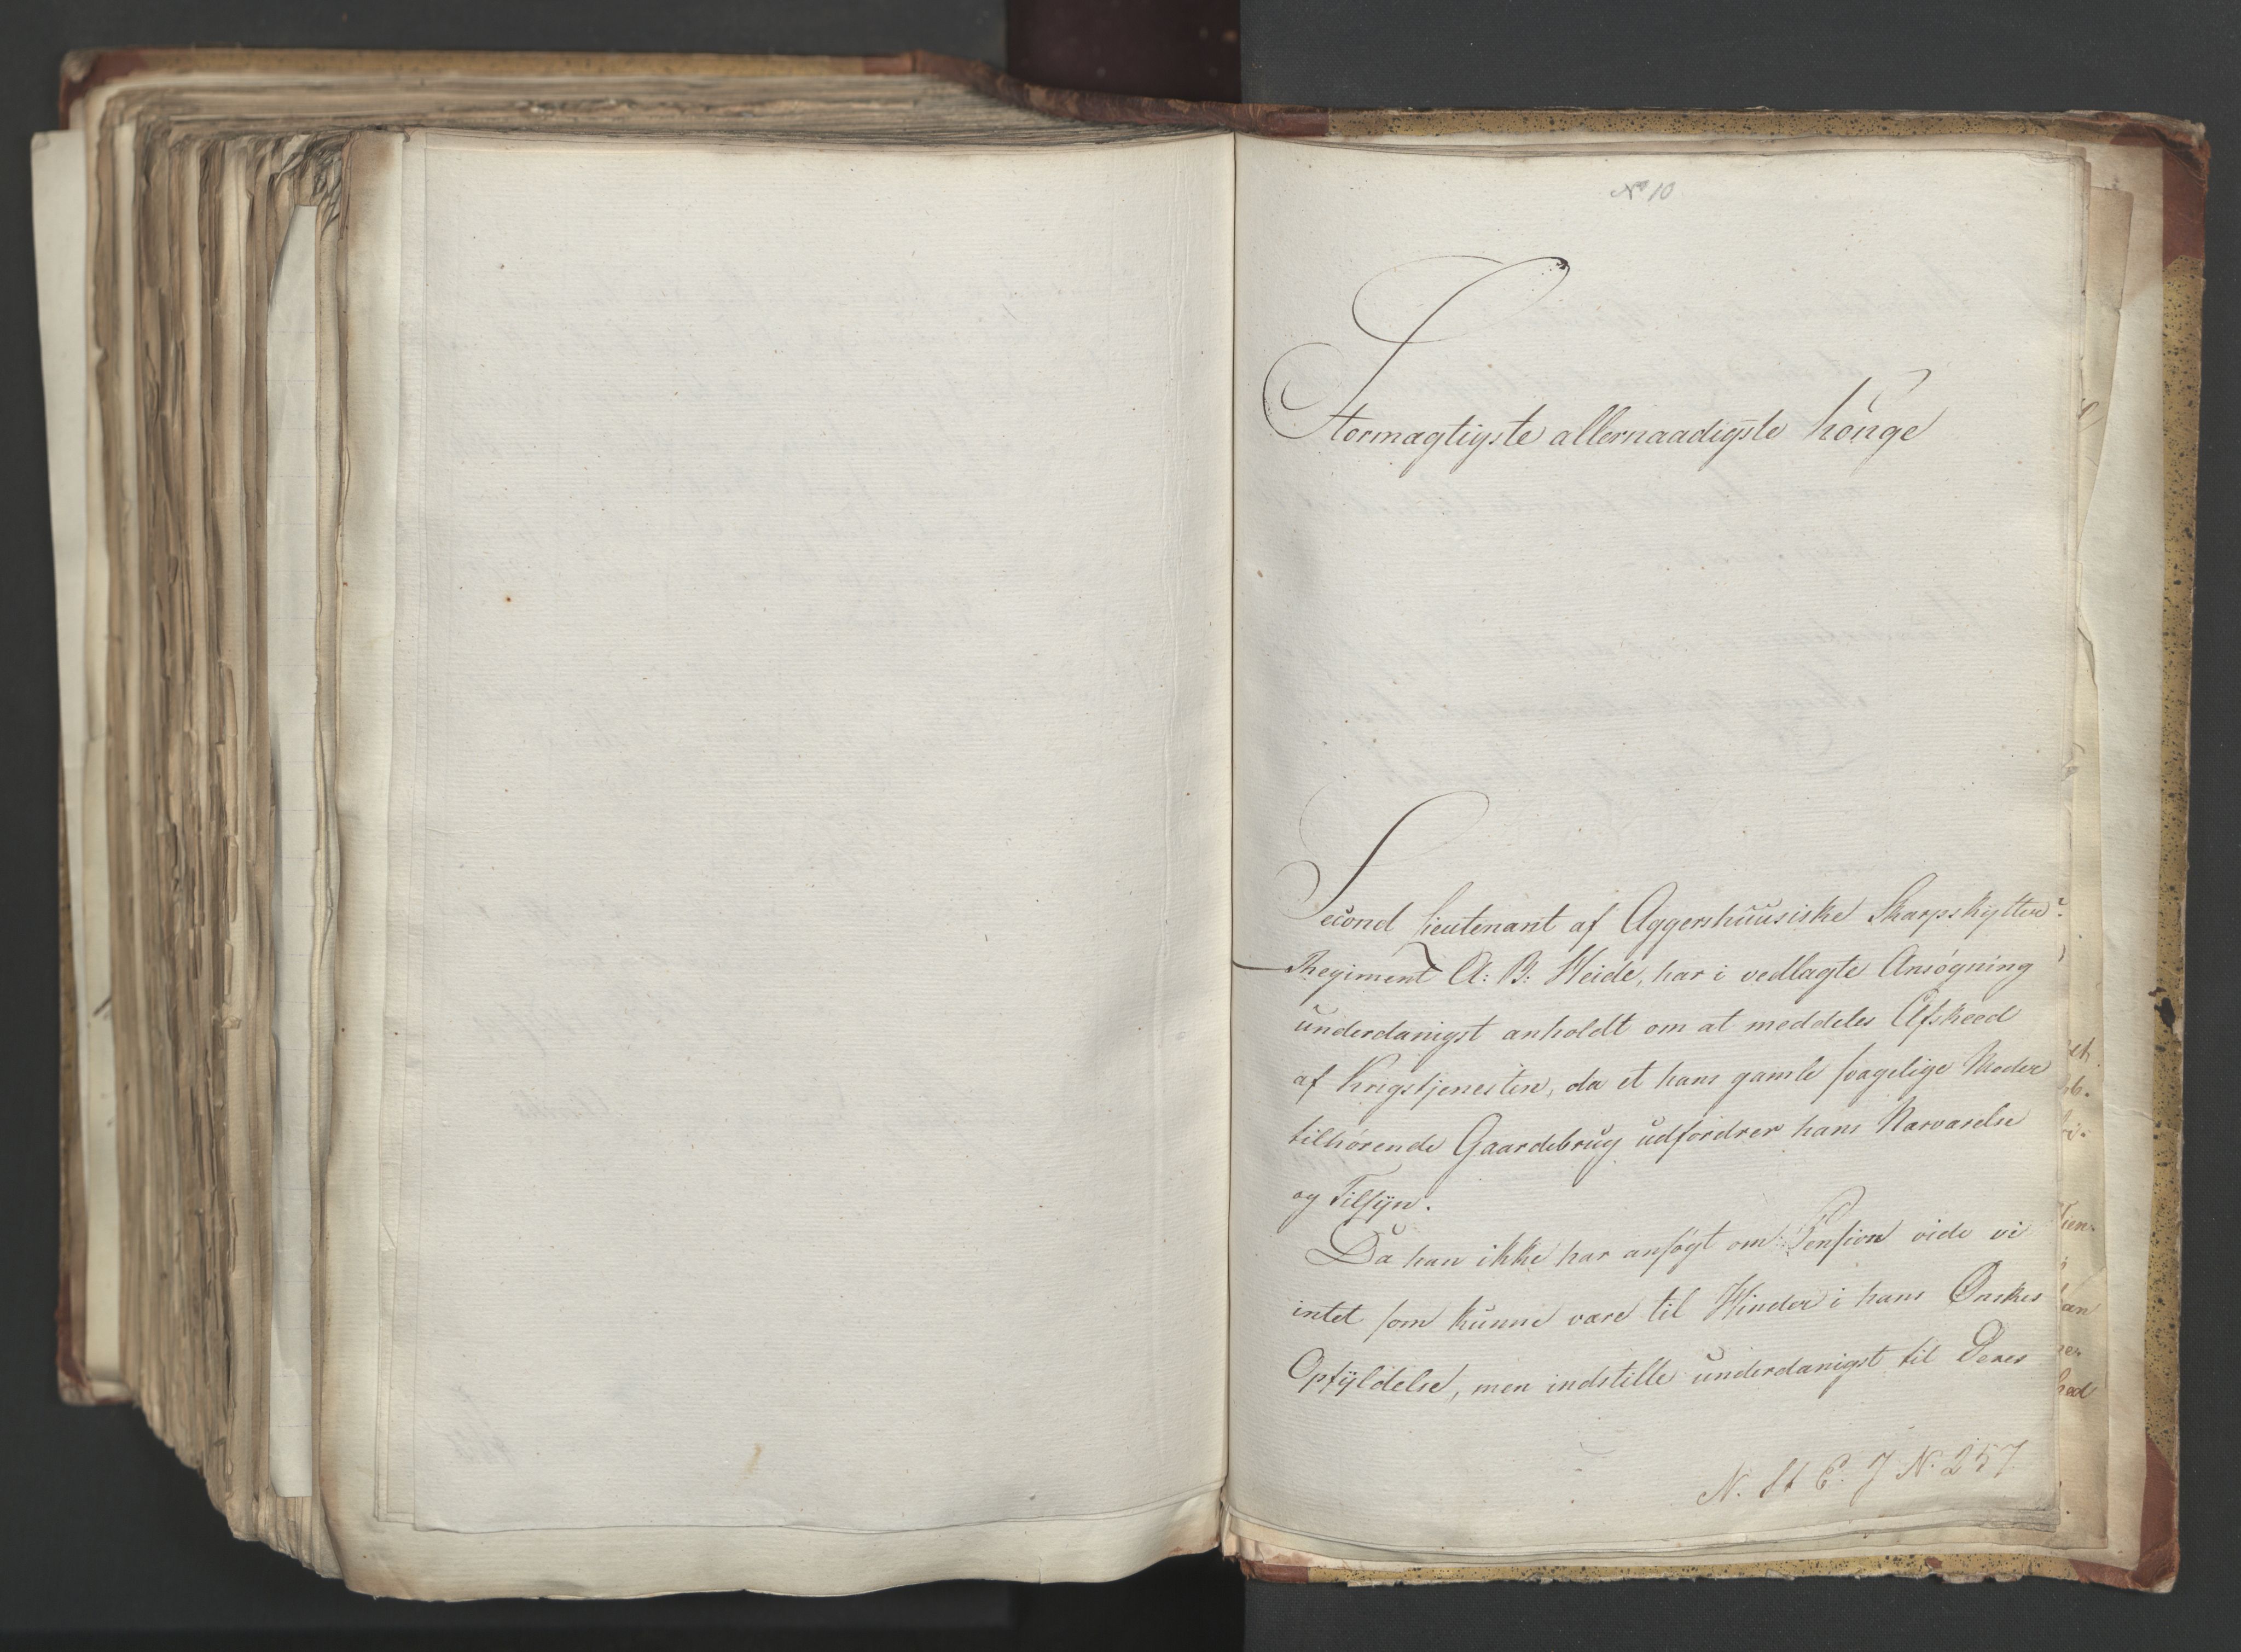 No 10
Stormagtigste allernaadigste Konge
Second Lieutenant af Aggershuusiske Skarpskytter-
Regiment A: B: Heide, har i vedlagte Ansøgning
underdanigst anholdt om at meddeles Afskeed
af Krigstjenesten, da et hans gamle svagelige Moder
tilhørende Gaardebrug udfordrer hans Nærværelse
og Tilsyn.
Da han ikke har ansøgt om Pension vide vi
intet som kunne være til Hinder i hans Ønskes
Opfyldelse, men indstille underdanigst til Deres
N. St C. J N. 257